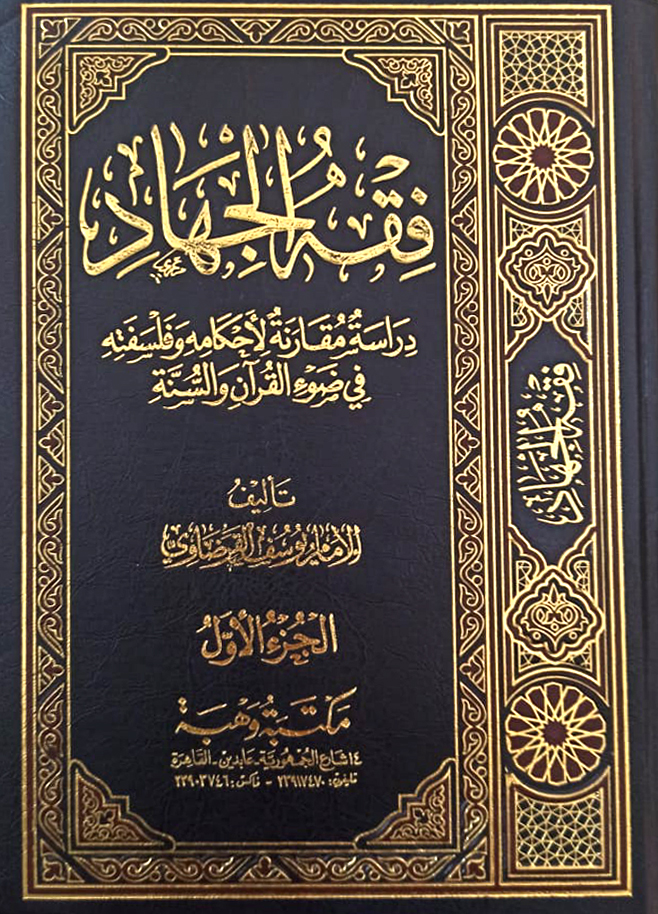 فِقْهُ الْجِهَادِ
دِرَاسَةٌ مُقَارَنَةٌ لِأَحْكَامِهِ وَفَلْسَفَتِهِ
فِي ضَوْءِ الْقُرْآنِ وَالسُّنَّةِ
تَأْلِيفُ
الإمام يوسف القرضاوي
الْجُزْءُ الْأَوَّلُ
مَكْتَبَة وَهْبَة
١٤ شارع الجُمهُوريَّة - عابدين - القاهِرَة
تليفون: ٢٣٩١٧٤٧٠ - فاكس: ٢٣٩٠٣٧٤٦
فِقْهُ الْجِهَادِ